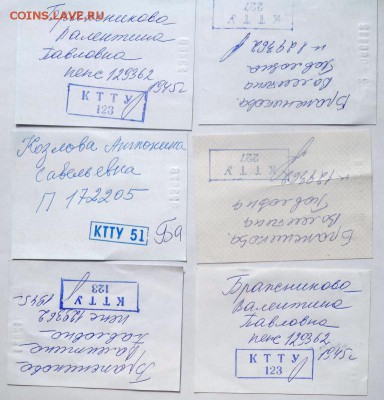 COINS.LAVE.RU
Бражникова
Валентина
Павловна
пенс 129362
1945г
КТТУ
123
КТТУ
227
п 129362
Павловна
Валентина
Бражникова.
Козлова Антонина
Савельевна
П 172205
КТТУ 51
КТТУ
227
п 129362
Павловна
Валентина
Бражникова.
КТТУ
123
1945г
пенс 129362
Павловна
Валентина
Бражникова
Бражникова
Валентина
Павловна
пенс 129362
1945г
КТТУ
123